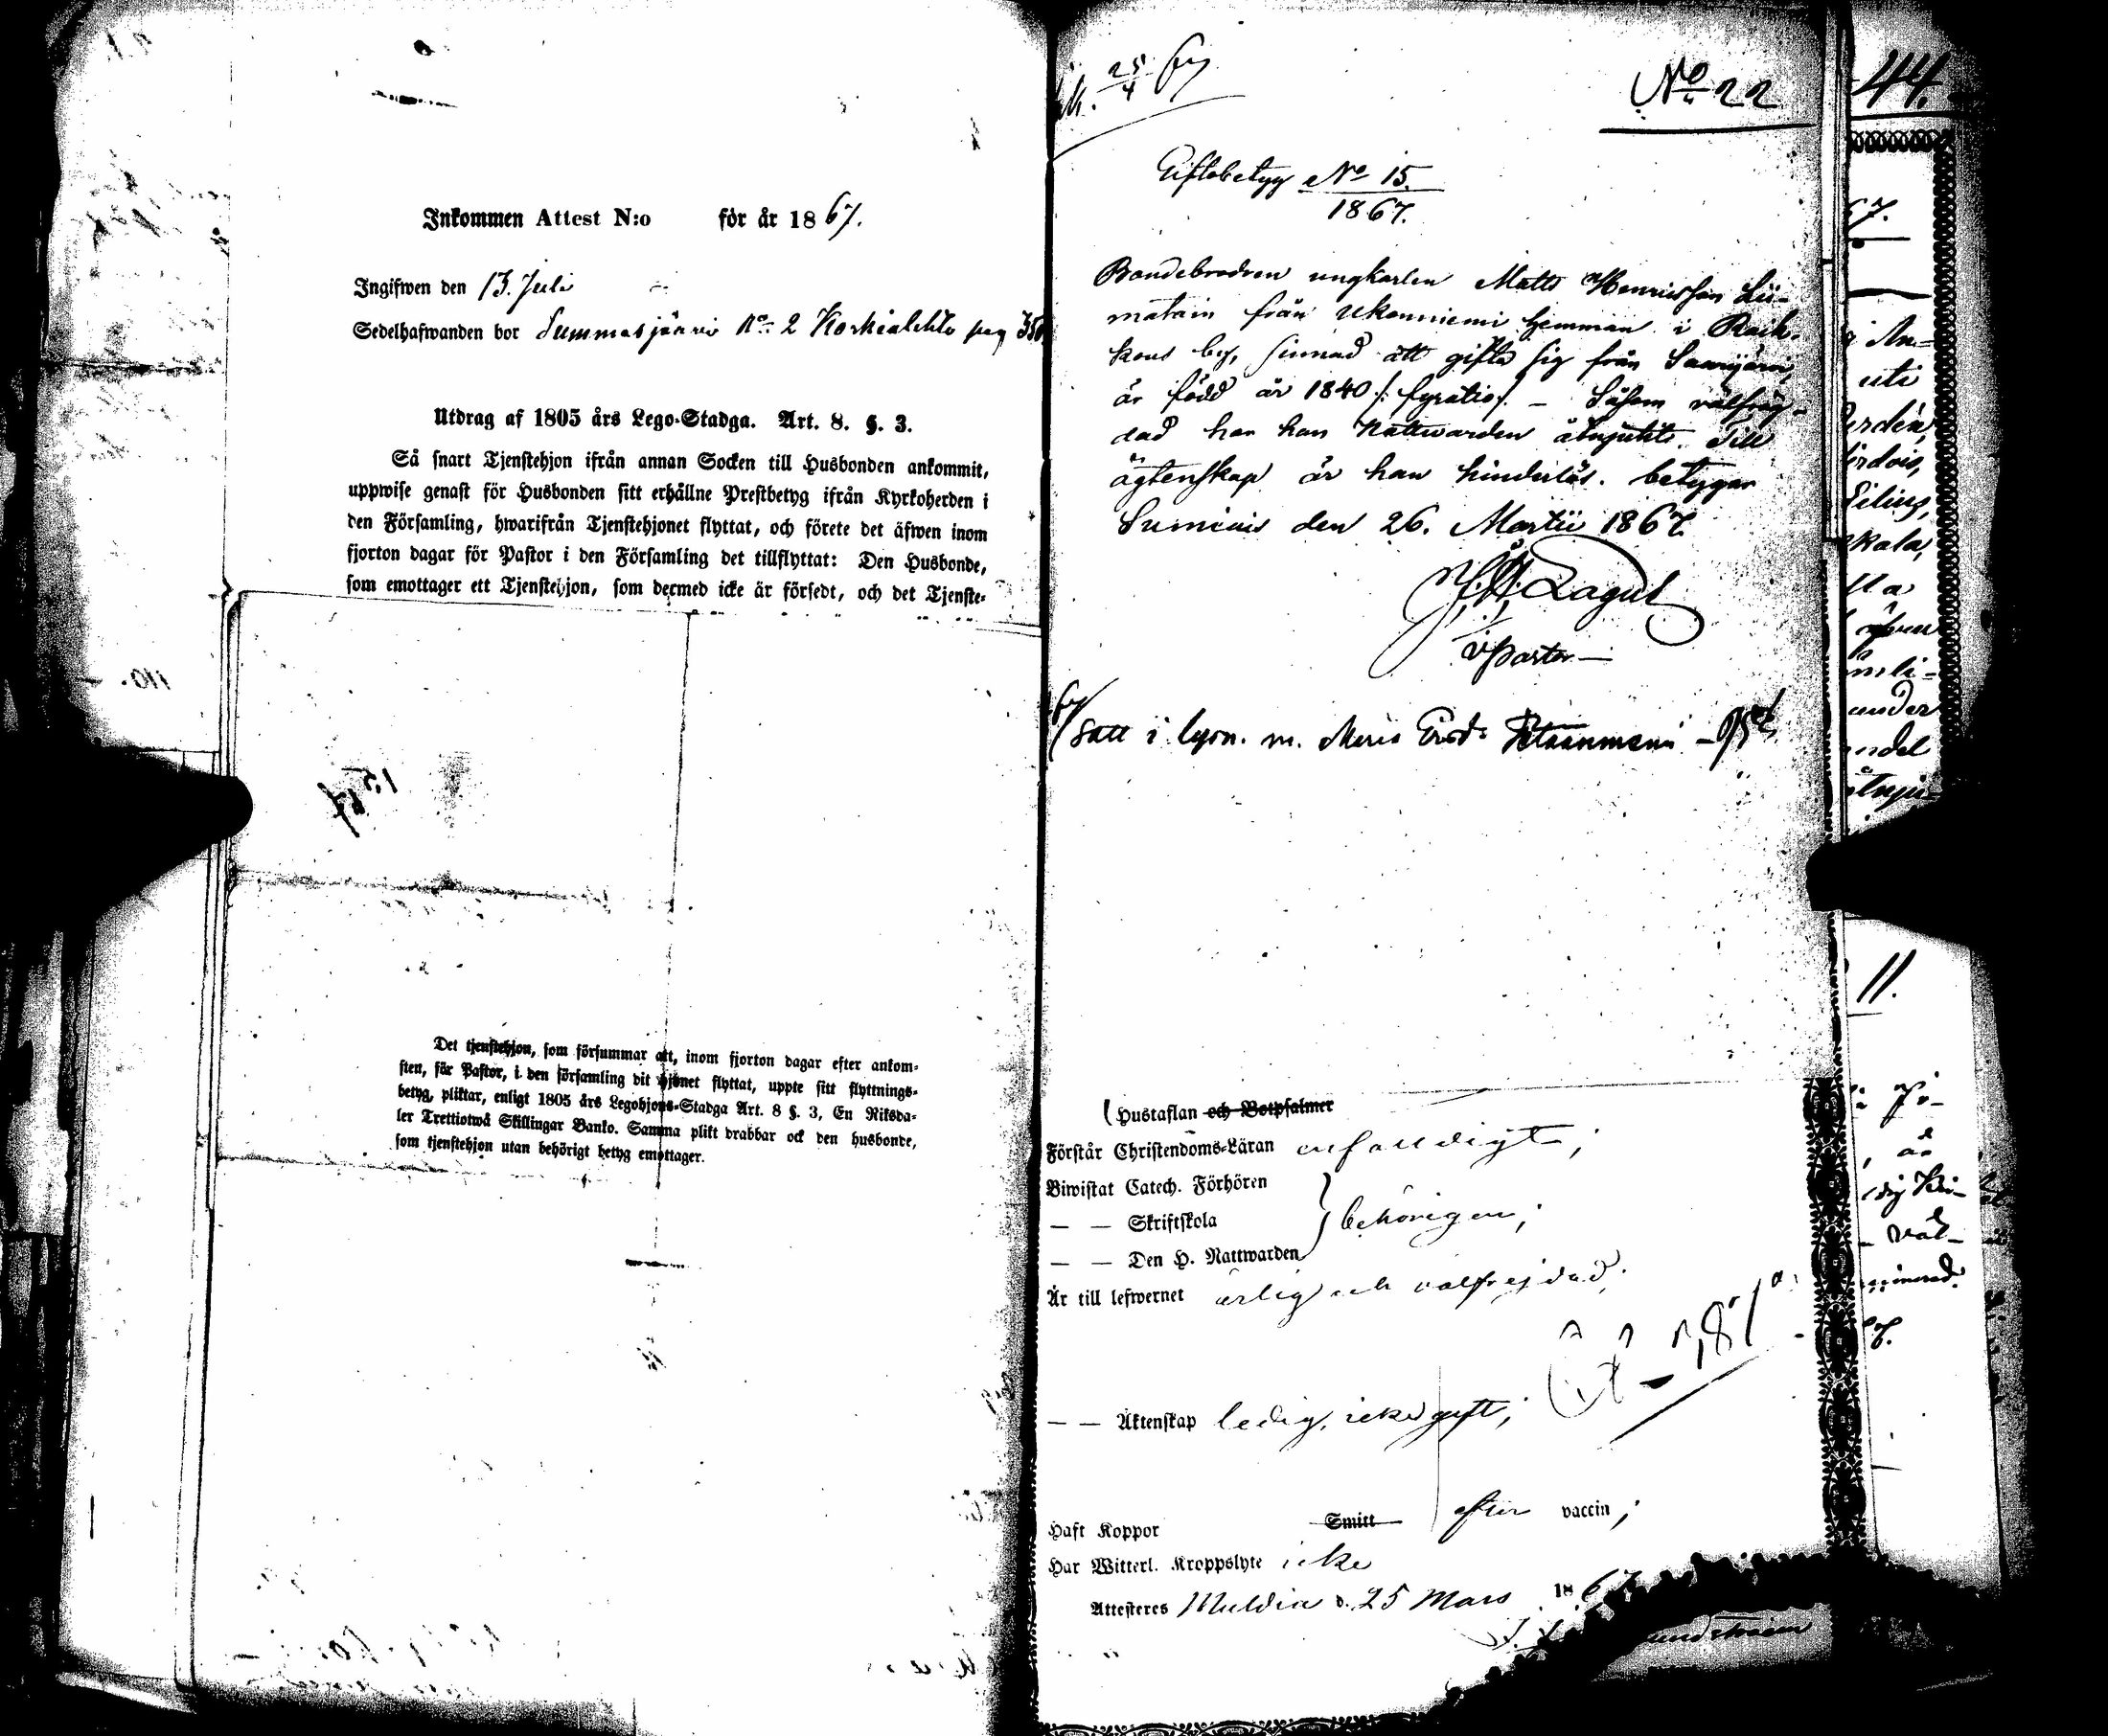 Inkommen Attest N:o för år 1867.
Ingifwen den 13. Juli
Sedelhafwanden bor Summasjärvi No 2 Korkialehto pag 350
Utdrag af 1805 års Lego-Stadga. Art. 8. §. 3.
Så snart Tjenstehjon ifrån annan Socken till Husbonden ankommit,
uppwise genast för Husbonden sitt erhållne Prestbetyg ifrån Kyrkoherden i
den Församling, hwarifrån Tjenstehjonet flyttat, och förete det äfwen inom
fjorton dagar för Pastor i den Församling det tillflyttat: Den Husbonde,
som emottager ett Tjenstehjon, som dermed icke är försedt, och det Tjenste-
Det tjenstehjon, som försummar att, inom fjorton dagar efter ankom-
sten, för Pastor, i den församling dit hjonet flyttat, uppte sitt flyttnings-
betyg, pliktar, enligt 1805 års Legohjons-Stadga Art. 8 §. 3, En Riksda-
ler Trettiotwå Skillingar Banko. Samma plikt drabbar ock den husbonde,
som tjenstehjon utan behörigt betyg emottager.
25/4 67
No 22
Giftobetyg No 15.
1867.
Bondebrodren ungkarlen Matts Henricsson Lii-
matain från Ukonniemi hemman i Raik-
kous by, sinnad att gifta sig från Saarijärvi,
är född år 1840 /: fyratio /. — Såsom välfräg-
dad har han Nattwarden åtnjutit. Till
ägtenskap är han hinderlös. betygar
Sumiais den 26. Martii 1867.
Lagus
v. Pastor —
Satt i lysn. m. Maria Ersd:
(Hustaflan och Botpsalmer
Förstår Christendoms-Läran enfaldigt;
Biwistat Catech. Förhören
— — Skriftskola } behörigen;
— — Den H. Nattwarden
Är till lefwernet ärlig och välfrejdad;
— — Äktenskap ledig, icke gift;
Haft Koppor Smitt efter vaccin;
Har Witterl. Kroppslyte icke
Attesteres Muldia d. 25 Mars 1867
44.
67.
An-
uti
kala,
äfven
under
åtnju-
11.
väl-